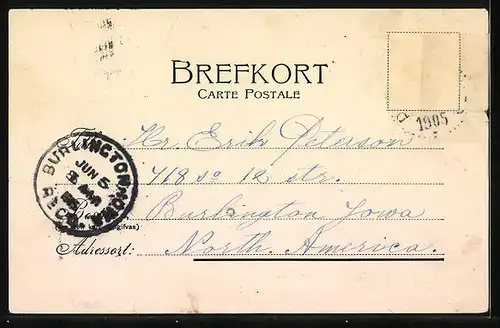 BREFKORT
CARTE POSTALE
1905
Hr. Erik Peterson
718 so 12 str.
Burlington Iowa
Adressort: North. America.
BURLINGTON, IOWA
JUN 5
REC'D.